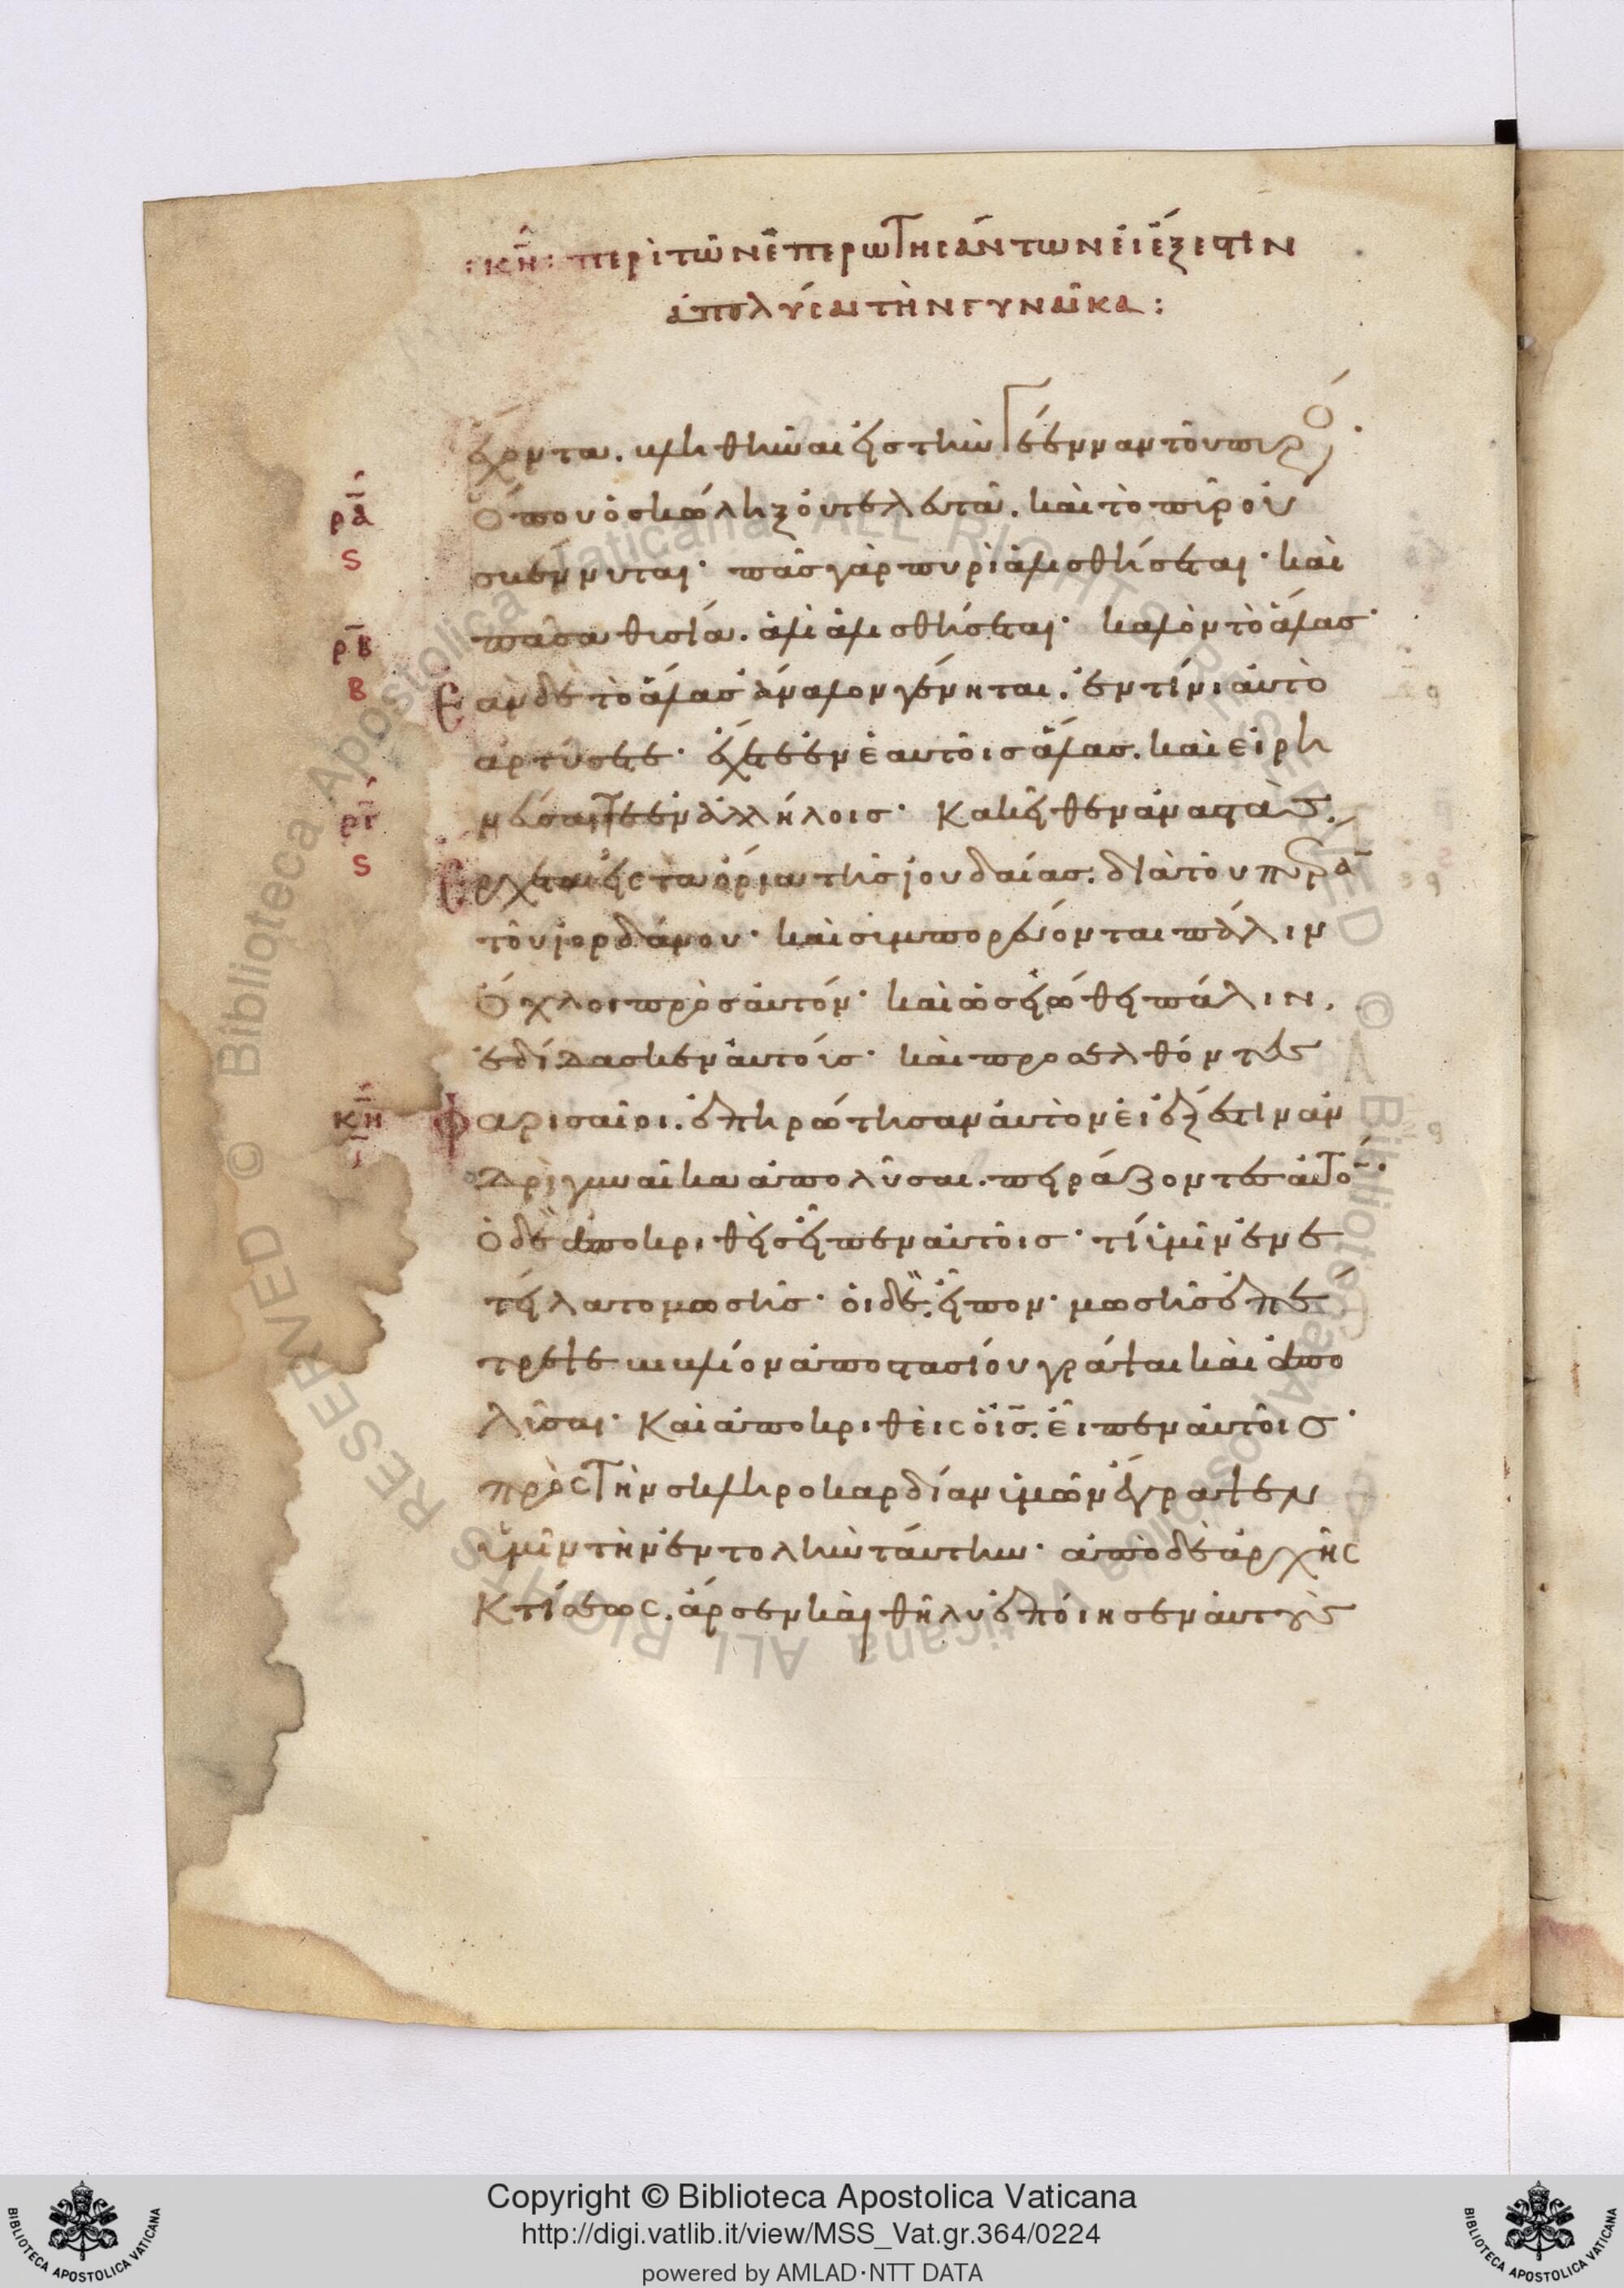 : κη : περὶ τῶν ἐπερωτησάντων εἰ ἔξεστιν
ἀπολύσαι τὴν γυναῖκα :
ἔχοντα. κληθῆναι εἰς τὴν γέενναν τοῦ πυρό·
ρα
ς
Ὅπου ὁ σκώληξ ὀυ τελευτᾶ. καὶ τὸ πῦρ οὐ
σβέννυται· πᾶς γὰρ πυρὶ ἁλισθήσεται· καὶ
ρβ
β
πᾶσα θυσία. ἁλὶ ἁλισθήσεται· καλὸν τὸ ἅλας·
Ἐὰν δὲ τὸ ἅλας ἄναλον γένηται. ἐν τίνι ἀυτὸ
ἀρτύσετε· ἔχετε ἐν ἑαυτοῖς ἅλας. καὶ εἰρη
ργ
ς
νεύσατε ἐν ἀλλήλοις· Κακεῖθεν ἀναστὰς.
Ἔρχεται εἰς τὰ ὅρια τῆς ἰουδαίας. διὰ τοῦ πέρα
τοῦ ἰορδάνου· καὶ συμπορεύονται πάλιν
Ὄχλοι πρὸς ἀυτόν· καὶ ὡς εἰώθει πάλιν.
ἐδίδασκεν ἀυτοῖς· καὶ προσελθόντες
κη
Φαρισαῖοι. ἐπηρώτησαν ἀυτὸν εἰ ἔξεστιν ἀν
δρὶ γυναῖκα ἀπολῦσαι. πειράζοντες ἀυτό·
ὁ δὲ ἀποκριθεὶς εἶπεν ἀυτοῖς· τί ὑμῖν ἐνε
τείλατο μωσῆς· οἱ δὲ. εἶπον· μωσῆς ἐπέ
τρεψε βιβλίον ἀποστασίου γράψαι καὶ ἀπο
λῦσαι· Καὶ ἀποκριθεὶς ὁ ις. εἶπεν ἀυτοῖς·
πρὸς τὴν σκληροκαρδίαν ὑμῶν ἔγραψεν
ὑμῖν τὴν ἐντολὴν ταύτην· ἀπὸ δὲ ἀρχῆς
Κτίσεως. ἄρσεν καὶ θῆλυ ἐποίησεν ἀυτοὺς
Copyright © Biblioteca Apostolica Vaticana
http://digi.vatlib.it/view/MSS_Vat.gr.364/0224
powered by AMLAD·NTT DATA